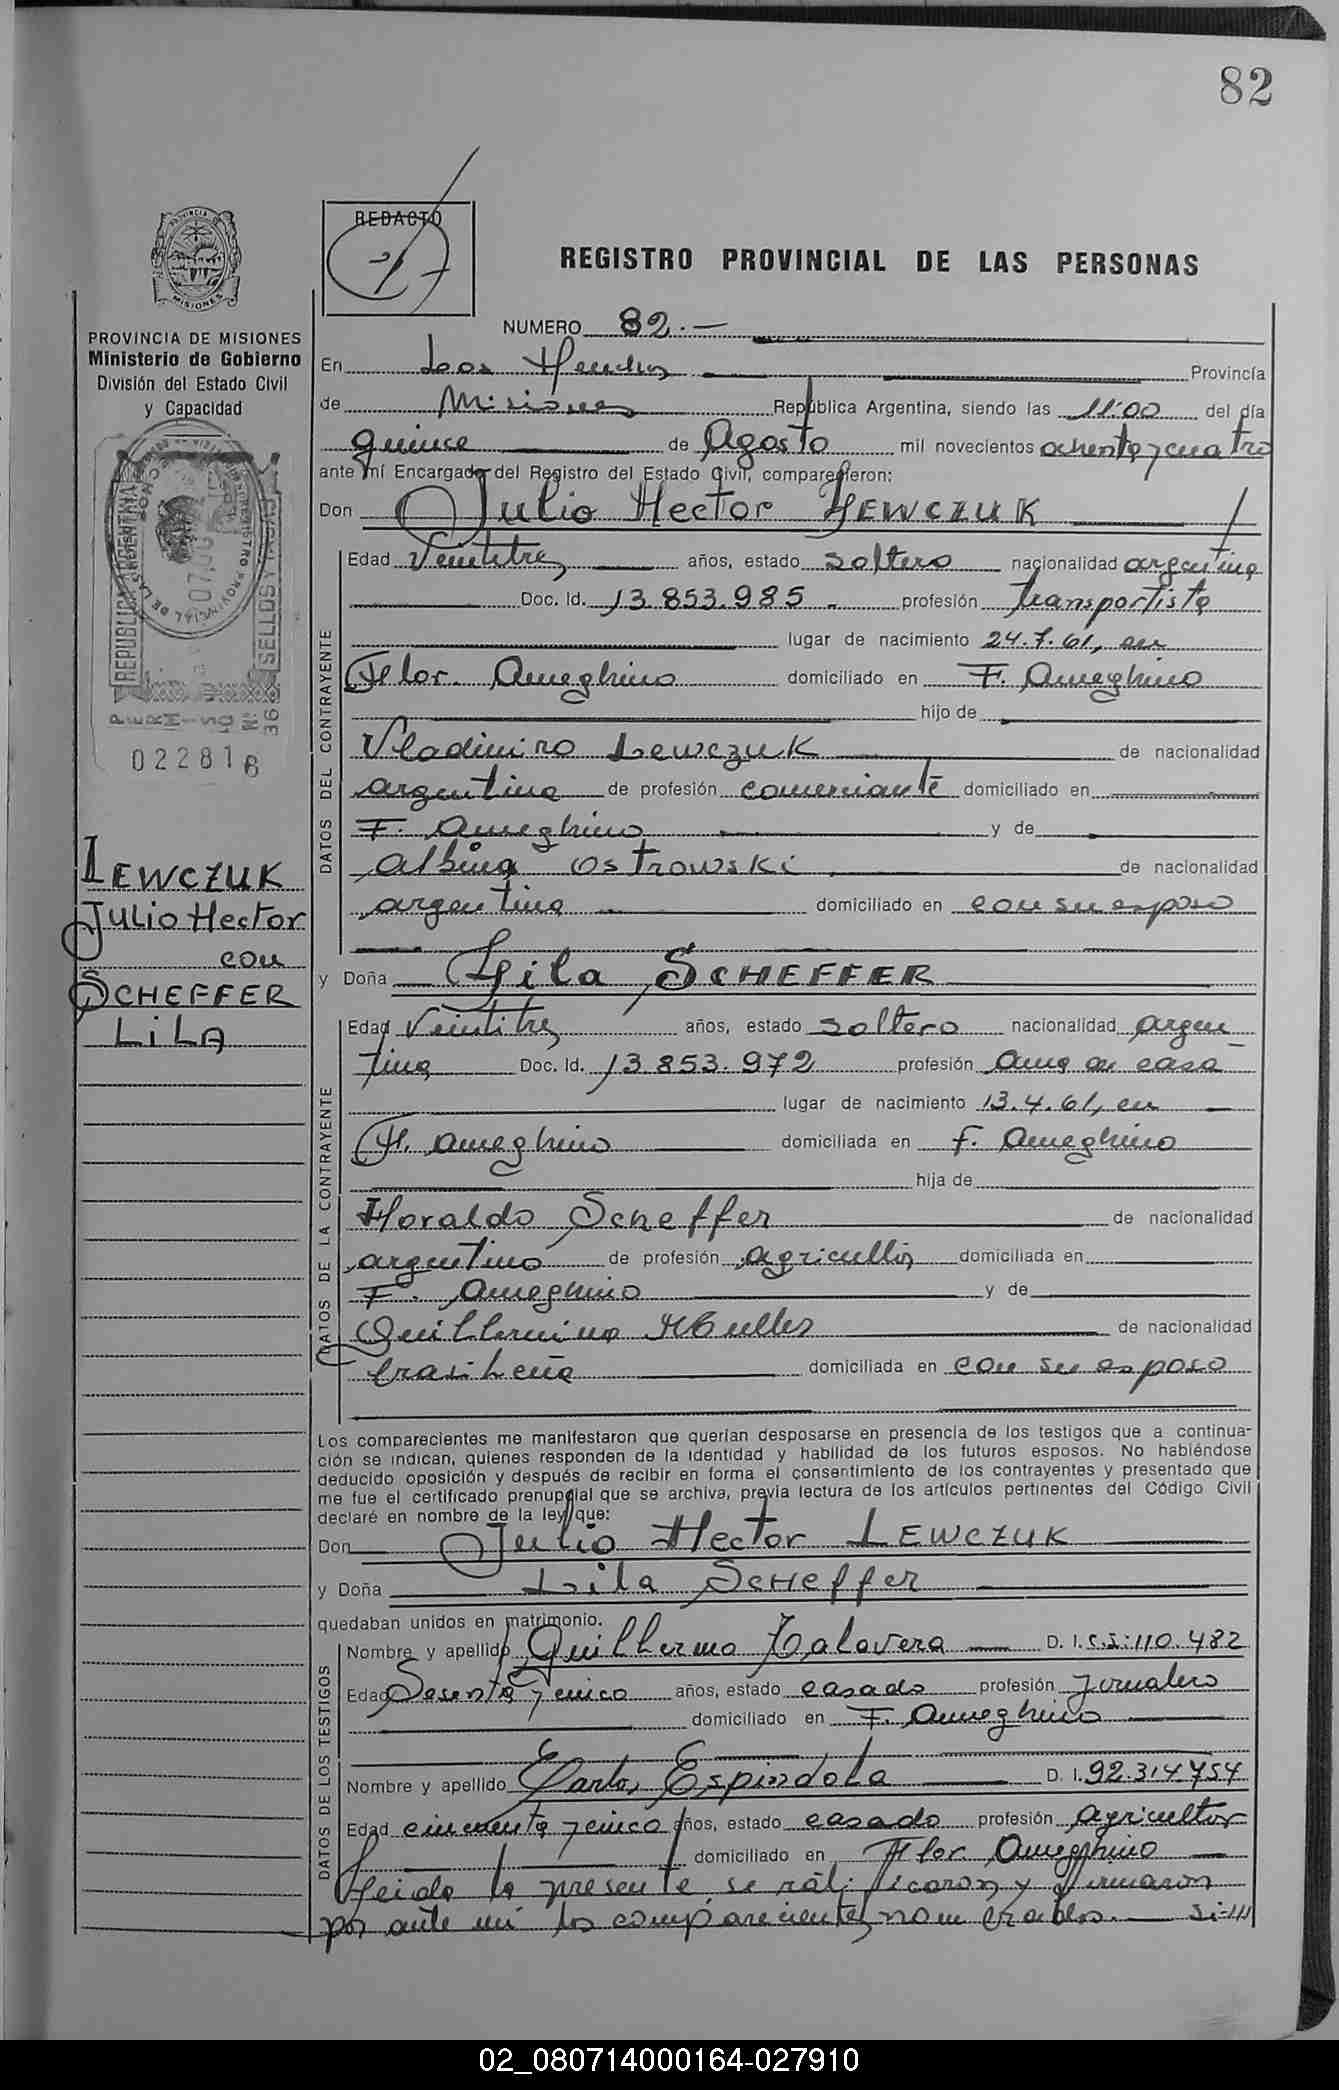 82
REDACTO
REGISTRO PROVINCIAL DE LAS PERSONAS
MISIONES
PROVINCIA DE MISIONES
Ministerio de Gobierno
División del Estado Civil
y Capacidad
REPUBLICA ARGENTINA
SELLOS Y TASAS
PERMISO Nº 36
022816
LEWCZUK
Julio Hector
con
SCHEFFER
LiLA
NUMERO 82.-
En Leandro Provincia
de Misiones República Argentina, siendo las 11:00 del día
quince de Agosto mil novecientos ochenta y cuatro
ante mí Encargado del Registro del Estado Civil, comparecieron:
Don Julio Hector LEWCZUK
DATOS DEL CONTRAYENTE
Edad Veintitres años, estado soltero nacionalidad argentina
Doc. Id. 13.853.985. profesión transportista
lugar de nacimiento 24.7.61, en
Flor. Ameghino domiciliado en F. Ameghino
hijo de
Vladimiro Lewczuk de nacionalidad
argentina de profesión comerciante domiciliado en
F. Ameghino y de
Albina Ostrowski de nacionalidad
argentina domiciliado en con su esposo
y Doña Lila SCHEFFER
DATOS DE LA CONTRAYENTE
Edad Veintitres años, estado soltero nacionalidad argen-
tina Doc. Id. 13.853.972 profesión ama de casa
lugar de nacimiento 13.4.61, en
F. Ameghino domiciliada en F. Ameghino
hija de
Horaldo Scheffer de nacionalidad
argentino de profesión agricultor domiciliada en
F. Ameghino y de
Guillermina Muller de nacionalidad
brasileña domiciliada en con su esposo
Los comparecientes me manifestaron que querían desposarse en presencia de los testigos que a continua-
ción se indican, quienes responden de la identidad y habilidad de los futuros esposos. No habiéndose
deducido oposición y después de recibir en forma el consentimiento de los contrayentes y presentado que
me fue el certificado prenupcial que se archiva, previa lectura de los artículos pertinentes del Código Civil
declaré en nombre de la ley que:
Don Julio Hector LEWCZUK
y Doña Lila Scheffer
quedaban unidos en matrimonio.
DATOS DE LOS TESTIGOS
Nombre y apellido Guillermo Talavera D. I. C.I:110.482
Edad Sesenta y cinco años, estado casado profesión jornalero
domiciliado en F. Ameghino
Nombre y apellido Carlos Espindola D. I. 92.314.754
Edad cincuenta y cinco años, estado casado profesión agricultor
domiciliado en Flor. Ameghino
Leida la presente se ratificaron y firmaron
por ante mi los comparecientes nombrados.
02_080714000164-027910